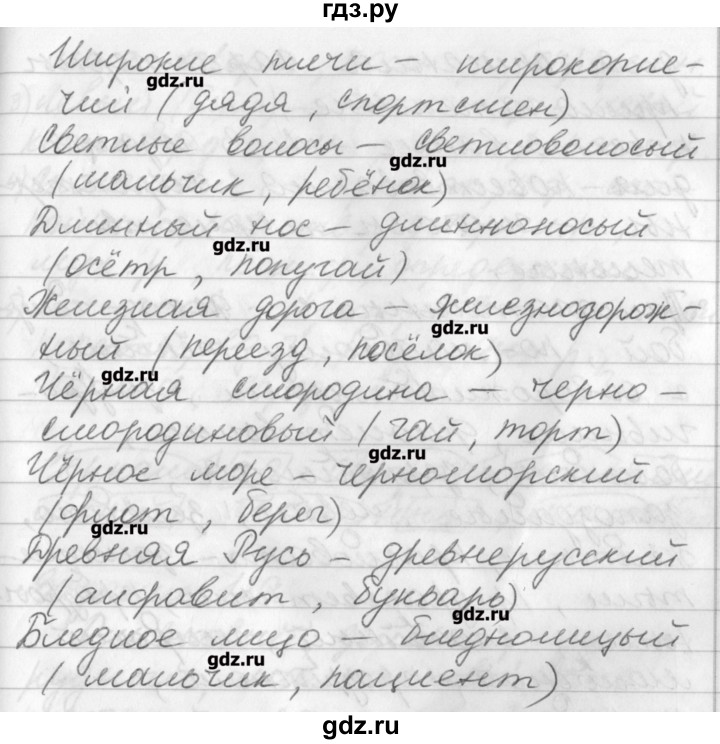 гдз.ру
Широкие плечи – широкопле-
gdz.ru
чий (дядя, спортсмен)
Светлые волосы – светловолосый
gdz.ru
(мальчик, ребёнок)
Длинный нос – длинноносый
gdz.ru
(осётр, попугай)
Железная дорога – железнодорож-
gdz.ru
ный (переезд, посёлок)
gdz.ru
Чёрная смородина – черно-
смородиновый (чай, торт)
gdz.ru
Чёрное море – черноморский
(флот, берег)
gdz.ru
Древняя Русь – древнерусский
(алфавит, букварь)
gdz.ru
Бледное лицо – бледнолицый
gdz.ru
(мальчик, пациент)
gdz.ru